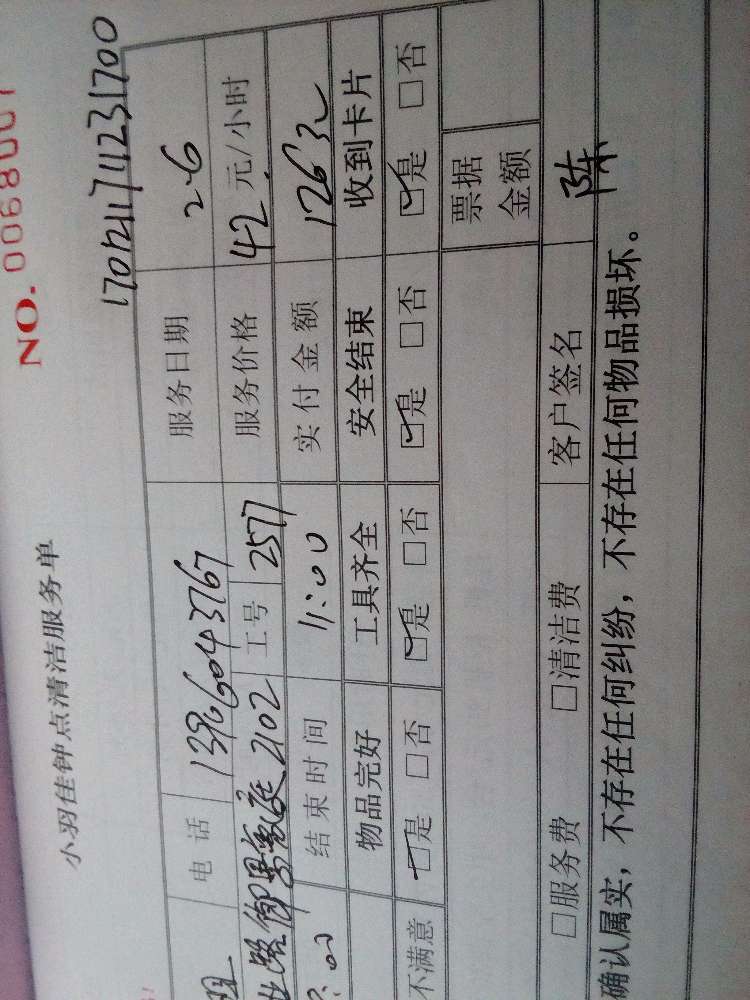 NO. 0068001
小羽佳钟点清洁服务单
170121174231700
电话 13966043767 服务日期 2-6
御景豪庭2102 工号 2577 服务价格 42 元/小时
结束时间 11:00 实付金额 126
物品完好 工具齐全 安全结束 收到卡片
不满意 ☑是 □否 ☑是 □否 ☑是 □否 ☑是 □否
票据金额
□服务费 □清洁费 客户签名 陈
确认属实，不存在任何纠纷，不存在任何物品损坏。